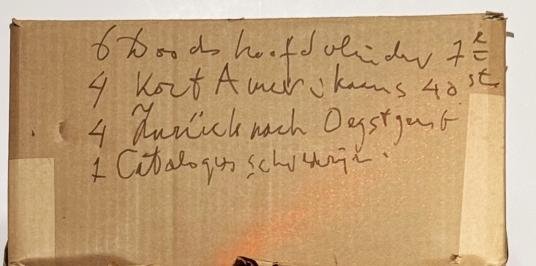 6 Doodshoofdvlinder 7 e
4 Kort Amerikaans 40 st.
4 Zurück nach Oegstgeest
1 Catalogus schuwrijn.